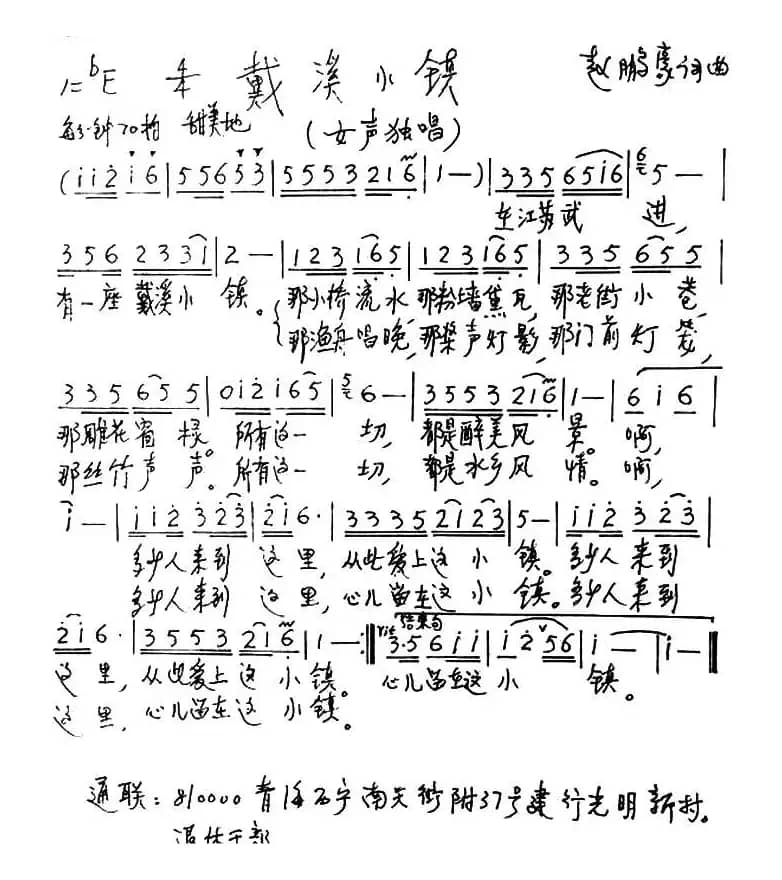 1=♭E 2/4 戴溪小镇 赵鹏豪词曲
每分钟70拍 甜美地 (女声独唱)
(i i 2 i 6 | 5 5 6 5 3 | 5 5 5 3 2 1 6 | 1 —) | 3 3 5 6 5 i 6 | 5 — |
在江苏武 进,
3 5 6 2 3 3 1 | 2 — | 1 2 3 1 6 5 | 1 2 3 1 6 5 | 3 3 5 6 5 5 |
有一座戴溪小 镇。 那小桥流水,那粉墙黛瓦,那老街小 巷,
那渔舟唱晚,那桨声灯影,那门前灯 笼,
3 3 5 6 5 5 | 0 i 2 i 6 5 | 6 — | 3 5 5 3 2 1 6 | 1 — | 6 i 6 |
那雕花窗 棂。所有这一 切, 都是醉美风 景。 啊,
那丝竹声 声。所有这一 切, 都是水乡风 情。 啊,
i — | i i 2 3 2 3 | 2 i 6 · | 3 3 3 5 2 1 2 3 | 5 — | i i 2 3 2 3 |
多少人来到 这里, 从此爱上这 小 镇。多少人来到
多少人来到 这里, 心儿留在这 小 镇。多少人来到
2 i 6 · | 3 5 5 3 2 1 6 | 1 — :‖ rit 结束句 3 · 5 6 i i | i 2 5 6 | i — | i — ‖
这里, 从此爱上这 小镇。 心儿留在这 小 镇。
这里, 心儿留在这 小镇。
通联: 810000 青海西宁南关街附37号建行光明新村。
温休干部